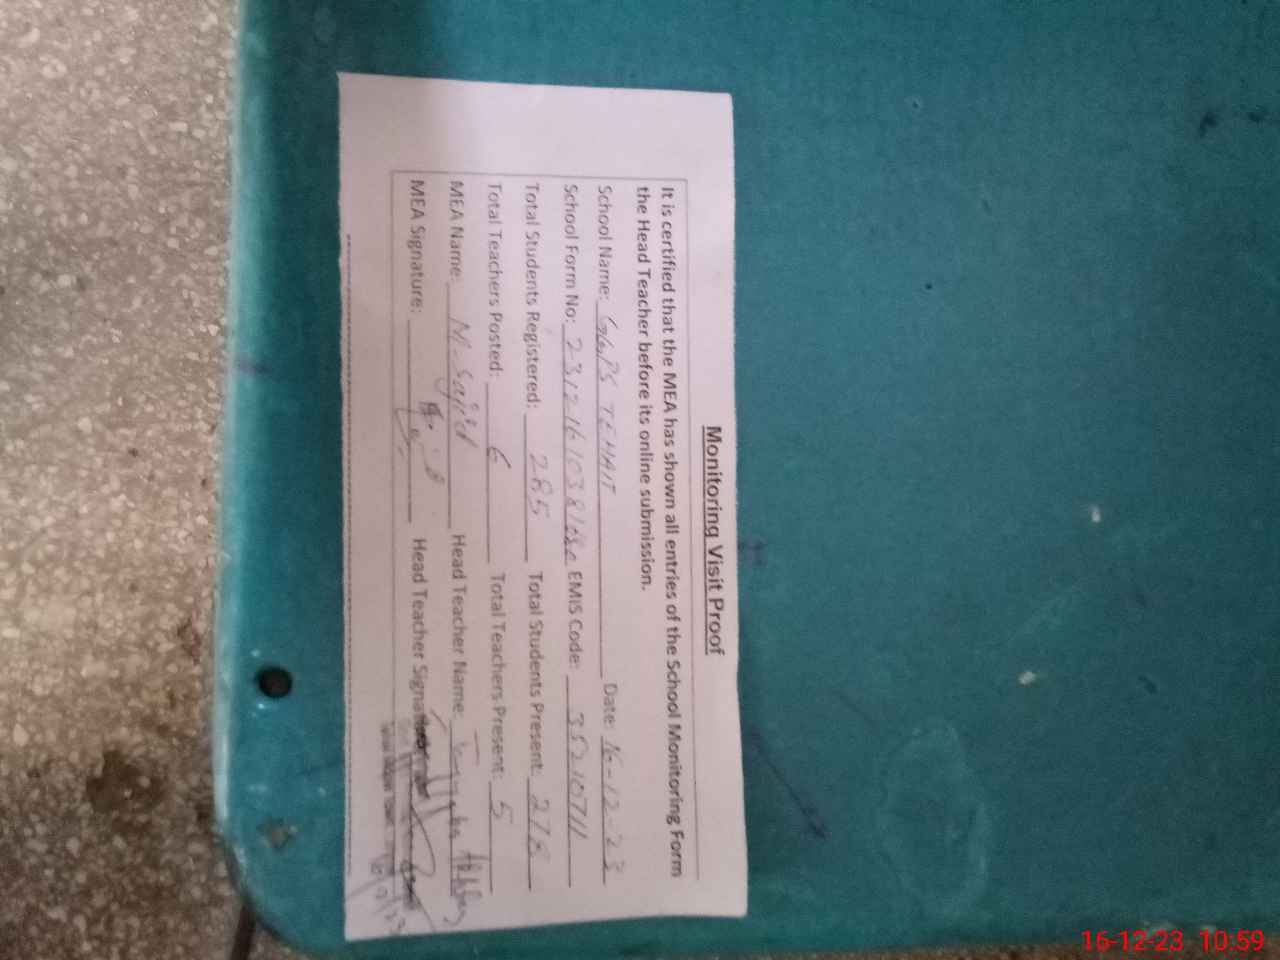 Monitoring Visit Proof
It is certified that the MEA has shown all entries of the School Monitoring Form
the Head Teacher before its online submission.
School Name: GGPS TEHAIT Date: 16-12-23
School Form No: EMIS Code: 35210711
Total Students Registered: 285 Total Students Present: 278
Total Teachers Posted: 6 Total Teachers Present: 5
MEA Name: M-Sajid Head Teacher Name: Abbas
MEA Signature: Head Teacher Signature:
16/12/23
16-12-23 10:59